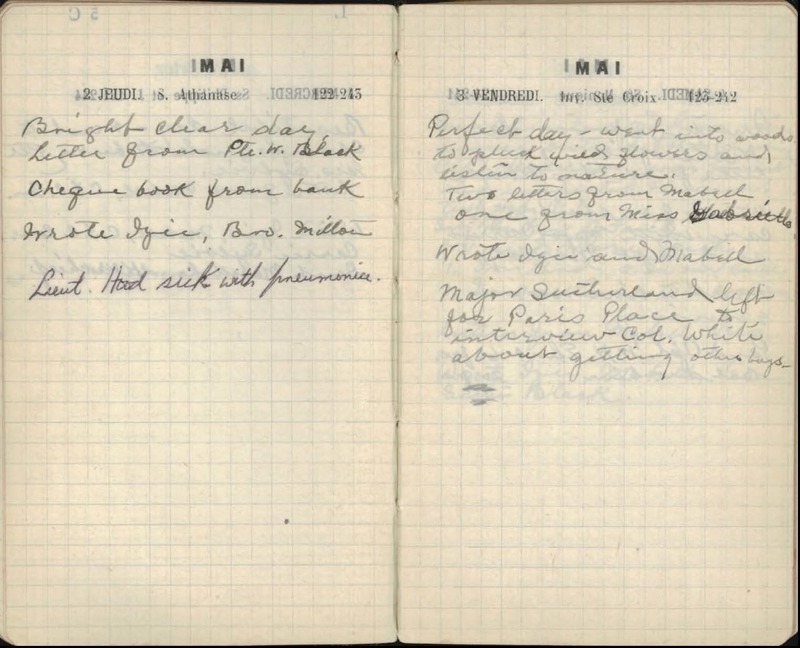 MAI
2 JEUDI. S. Athanase 122-243
Bright clear day.
Letter from Pte. W. Black
Cheque book from bank
Wrote Izie, Bro. Milton
Lieut. Hood sick with pneumonia.
MAI
3 VENDREDI. Inv. Ste Croix 123-242
Perfect day - went into woods
to pluck wild flowers and
listen to nature.
Two letters from Mabell
one from Miss
Wrote Izie and Mabell
Major Sutherland left
for Paris Place to
interview Col. White
about getting other boys-